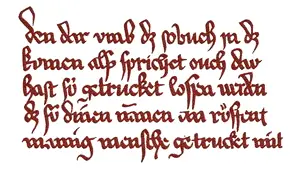 den dar vmb dz sobuch in dz
komen alß sprichet ouch dar
hast sö getrucket lossen werdn
dz sö dinen namen an rüffent
mannig mensche getrucket mit